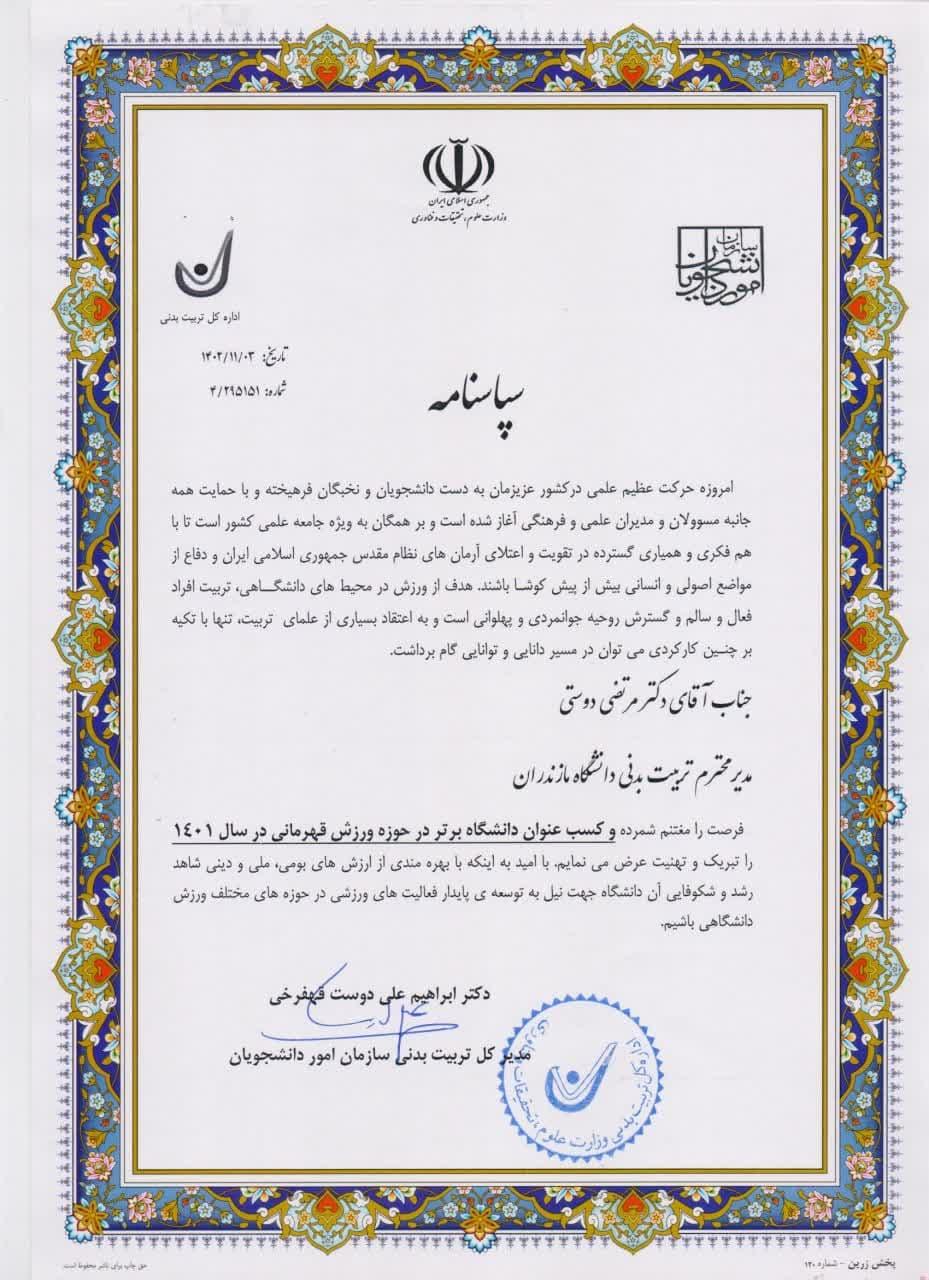 جمهوری اسلامی ایران
وزارت علوم، تحقیقات و فناوری
سازمان
امور دانشجویان
اداره کل تربیت بدنی
تاریخ: ۱۴۰۲/۱۱/۰۳
شماره: ۴/۲۹۵۱۵۱
سپاسنامه
امروزه حرکت عظیم علمی درکشور عزیزمان به دست دانشجویان و نخبگان فرهیخته و با حمایت همه
جانبه مسوولان و مدیران علمی و فرهنگی آغاز شده است و بر همگان به ویژه جامعه علمی کشور است تا با
هم فکری و همیاری گسترده در تقویت و اعتلای آرمان های نظام مقدس جمهوری اسلامی ایران و دفاع از
مواضع اصولی و انسانی بیش از پیش کوشا باشند. هدف از ورزش در محیط های دانشگاهی، تربیت افراد
فعال و سالم و گسترش روحیه جوانمردی و پهلوانی است و به اعتقاد بسیاری از علمای تربیت، تنها با تکیه
بر چنین کارکردی می توان در مسیر دانایی و توانایی گام برداشت.
جناب آقای دکتر مرتضی دوستی
مدیر محترم تربیت بدنی دانشگاه مازندران
فرصت را مغتنم شمرده و کسب عنوان دانشگاه برتر در حوزه ورزش قهرمانی در سال ۱۴۰۱
را تبریک و تهنیت عرض می نمایم. با امید به اینکه با بهره مندی از ارزش های بومی، ملی و دینی شاهد
رشد و شکوفایی آن دانشگاه جهت نیل به توسعه ی پایدار فعالیت های ورزشی در حوزه های مختلف ورزش
دانشگاهی باشیم.
دکتر ابراهیم علی دوست قهفرخی
مدیر کل تربیت بدنی سازمان امور دانشجویان
اداره کل تربیت بدنی وزارت علوم، تحقیقات و فناوری
پخش زرین - شماره ۱۲۰
حق چاپ برای ناشر محفوظ است.